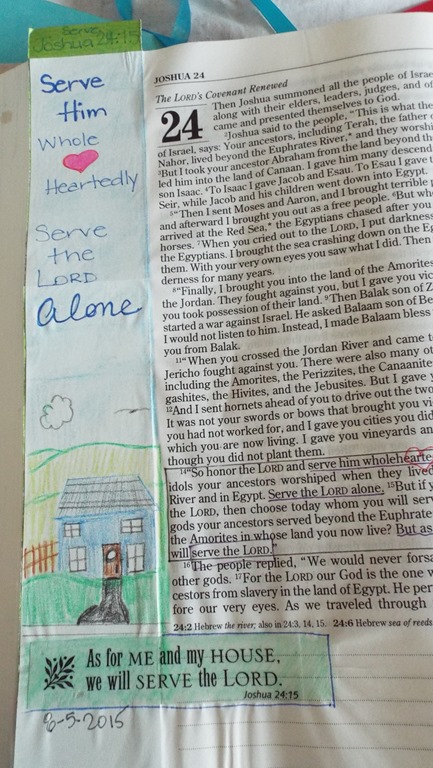 Serve
Joshua 24:15
Serve
Him
Whole
Heartedly
Serve
the
LORD
alone
JOSHUA 24
The LORD's Covenant Renewed
24
Then Joshua summoned all the people of Israe
along with their elders, leaders, judges, and of
came and presented themselves to God.
2Joshua said to the people, "This is what the
of Israel, says: Your ancestors, including Terah, the father
Nahor, lived beyond the Euphrates River,* and they worsh
3But I took your ancestor Abraham from the land beyond th
led him into the land of Canaan. I gave him many descend
son Isaac. 4To Isaac I gave Jacob and Esau. To Esau I gave t
Seir, while Jacob and his children went down into Egypt.
5"Then I sent Moses and Aaron, and I brought terrible
and afterward I brought you out as a free people. 6But wh
arrived at the Red Sea,* the Egyptians chased after you
horses. 7When you cried out to the LORD, I put darkness
the Egyptians. I brought the sea crashing down on the Eg
them. With your very own eyes you saw what I did. Then
derness for many years.
8"Finally, I brought you into the land of the Amorites
the Jordan. They fought against you, but I gave you vic
you took possession of their land. 9Then Balak son of Z
started a war against Israel. He asked Balaam son of Be
I would not listen to him. Instead, I made Balaam bless
you from Balak.
11"When you crossed the Jordan River and came t
Jericho fought against you. There were also many ot
including the Amorites, the Perizzites, the Canaanite
gashites, the Hivites, and the Jebusites. But I gave y
12And I sent hornets ahead of you to drive out the two
It was not your swords or bows that brought you vi
you had not worked for, and I gave you cities you did
which you are now living. I gave you vineyards an
though you did not plant them.
14"So honor the LORD and serve him wholehearte
idols your ancestors worshiped when they live
River and in Egypt. Serve the LORD alone. 15But if y
the LORD, then choose today whom you will serv
gods your ancestors served beyond the Euphrate
the Amorites in whose land you now live? But as
will serve the LORD."
16The people replied, "We would never forsa
other gods. 17For the LORD our God is the one w
cestors from slavery in the land of Egypt. He per
fore our very eyes. As we traveled through
24:2 Hebrew the river; also in 24:3, 14, 15. 24:6 Hebrew sea of reeds.
As for ME and my HOUSE,
we will SERVE the LORD.
Joshua 24:15
8-5-2015